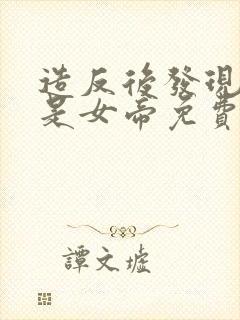 造反後發現
是女帝免費
譚文墟